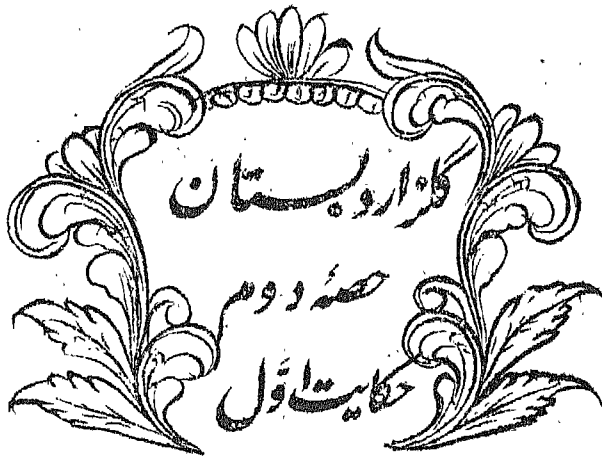 گلزار دبستان
حصۂ دوم
حکایت اوّل